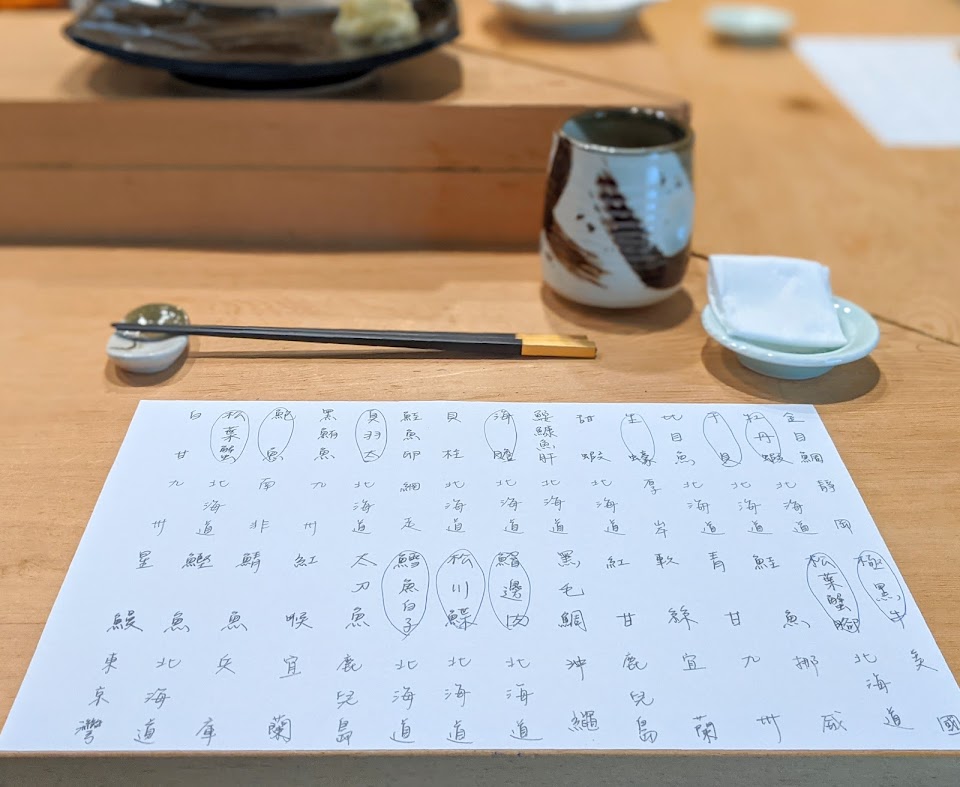 金目鯛 靜岡
牡丹蝦 北海道
干貝 北海道
比目魚 北海道
生蠔 厚岸
甜蝦 北海道
鮟鱇魚肝 北海道
海膽 北海道
貝柱 北海道
鮭魚卵 網走
真羽太 北海道
黑鮪魚 九州
鮑魚 南非
松葉蟹 北海道
白甘 九州
極黑牛 美國
松葉蟹腳 北海道
鮭魚 挪威
青甘 九州
軟絲 宜蘭
紅甘 鹿兒島
黑毛鯛 沖繩
鰭邊肉 北海道
松川鰈 北海道
鱈魚白子 北海道
太刀魚 鹿兒島
紅喉 宜蘭
鯖魚 兵庫
鰹魚 北海道
星鰻 東京灣